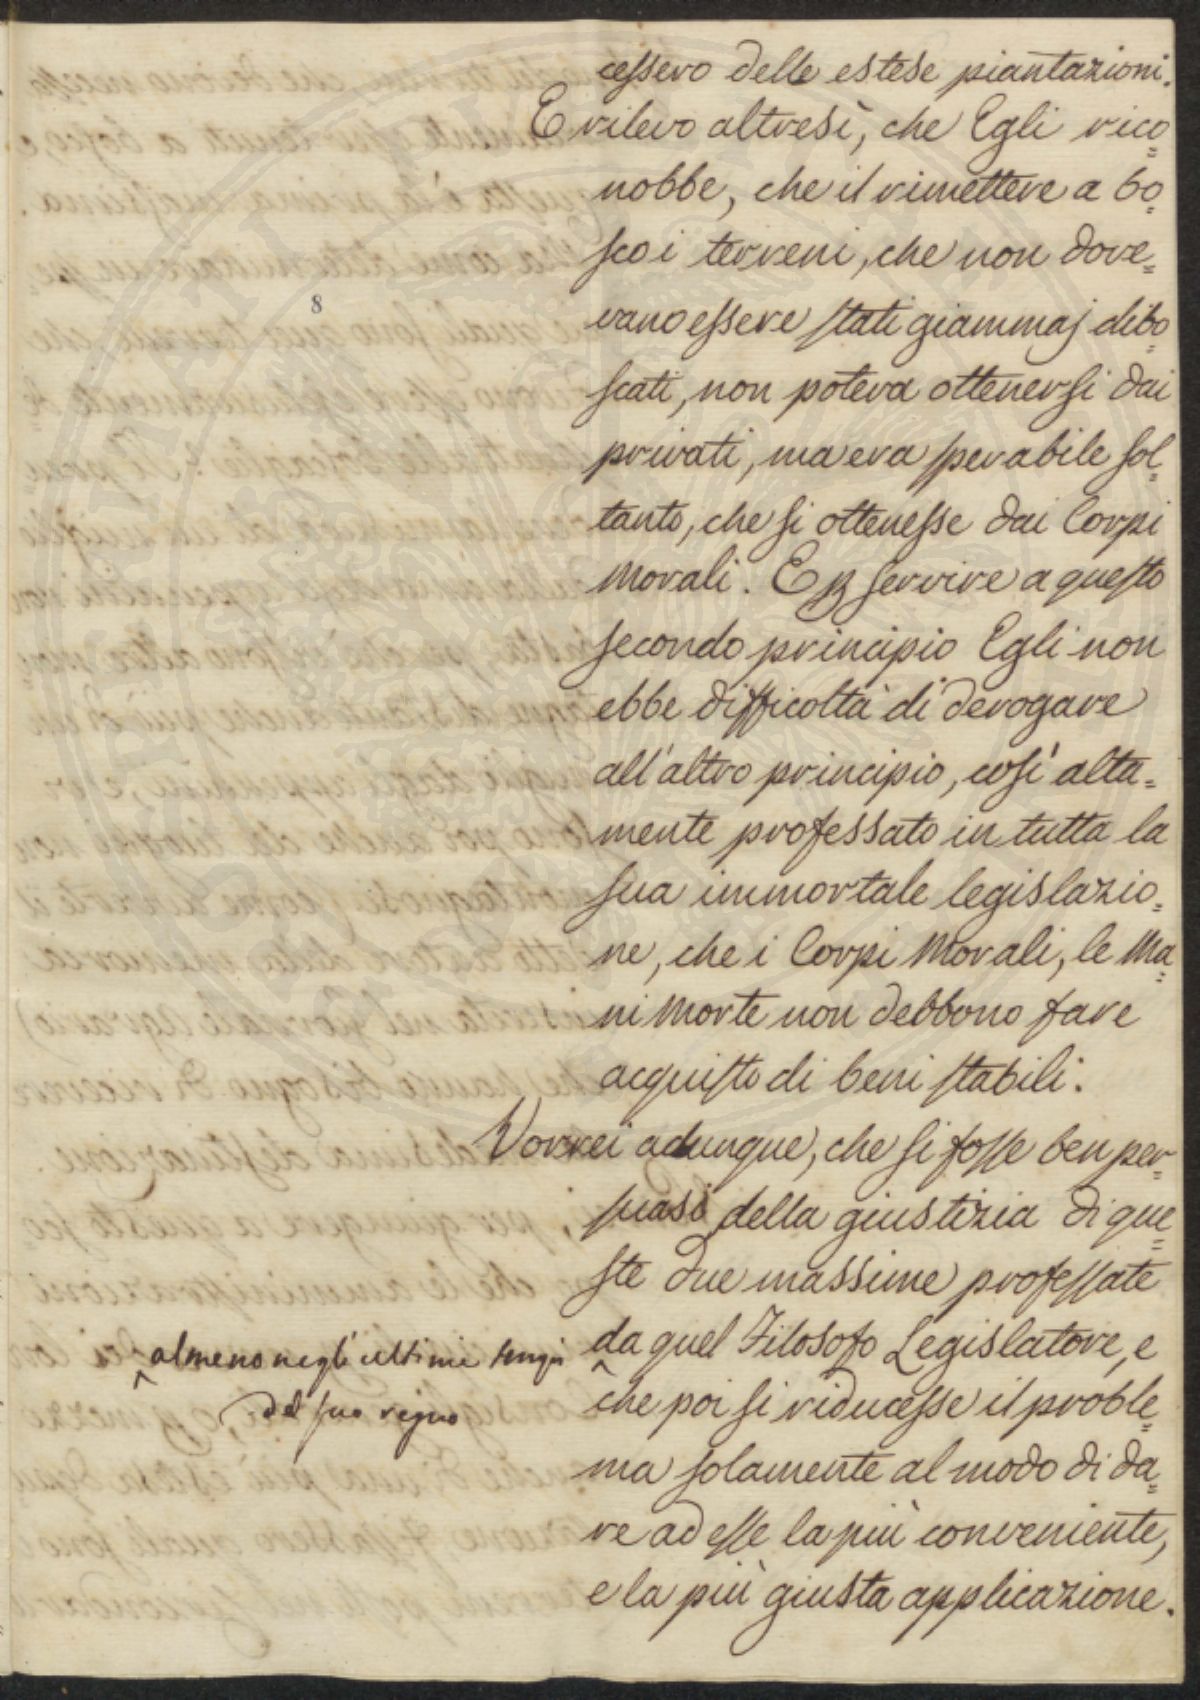 cessero delle estese piantazioni.
E rilevo altresì, che Egli rico=
nobbe, che il rimettere a bo=
sco i terreni, che non dove=
vano essere stati giammaj disbo=
scati, non poteva ottenersi dai
privati, ma era sperabile sol=
tanto, che si ottenesse dai Corpi
Morali. E p servire a questo
secondo principio Egli non
ebbe difficoltà di derogare
all'altro principio, così alta=
mente professato in tutta la
sua immortale legislazio=
ne, che i Corpi Morali, le Ma=
ni Morte non debbono fare
acquisto di beni stabili.
Vorrei adunque, che si fosse ben per=
suasi della giustizia di que=
ste due massime professate
da quel Filosofo Legislatore, e
almeno negli ultimi tempi
del suo regno
che poi si riducesse il proble=
ma solamente al modo di da=
re ad esse la più conveniente,
e la più giusta applicazione.
8